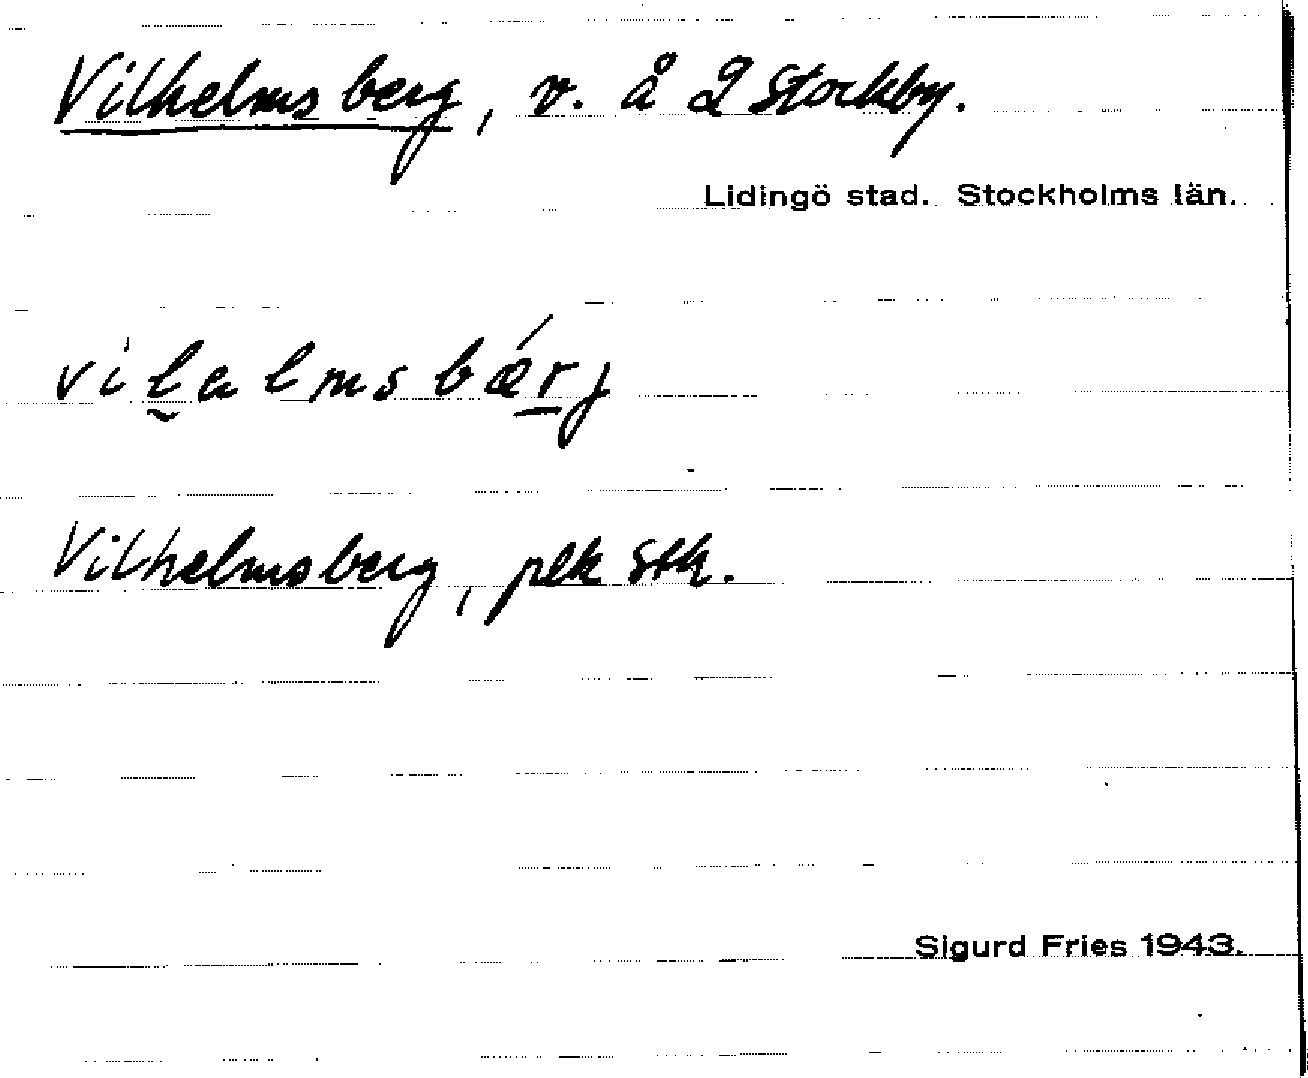 Vilhelmsberg, v. å 2 Stockby.
Lidingö stad. Stockholms län.
vìlalmsbǽrj
Vilhelmsberg, plk Stk.
Sigurd Fries 1943.